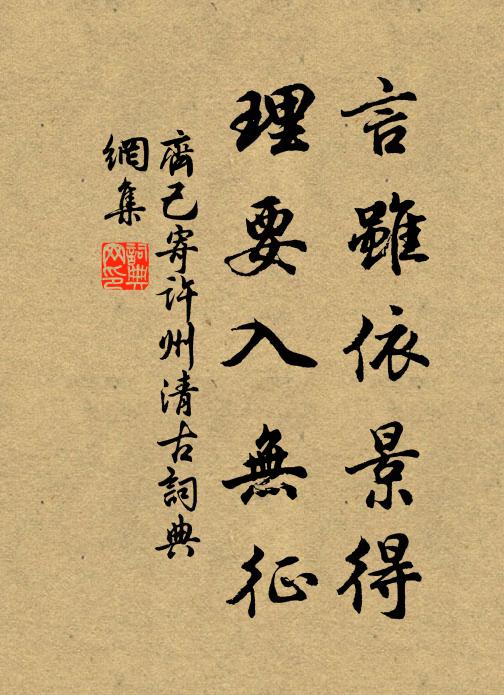 言雖依景得
理要入無征
齊己寄許州清古詞典
網集
詞典網印